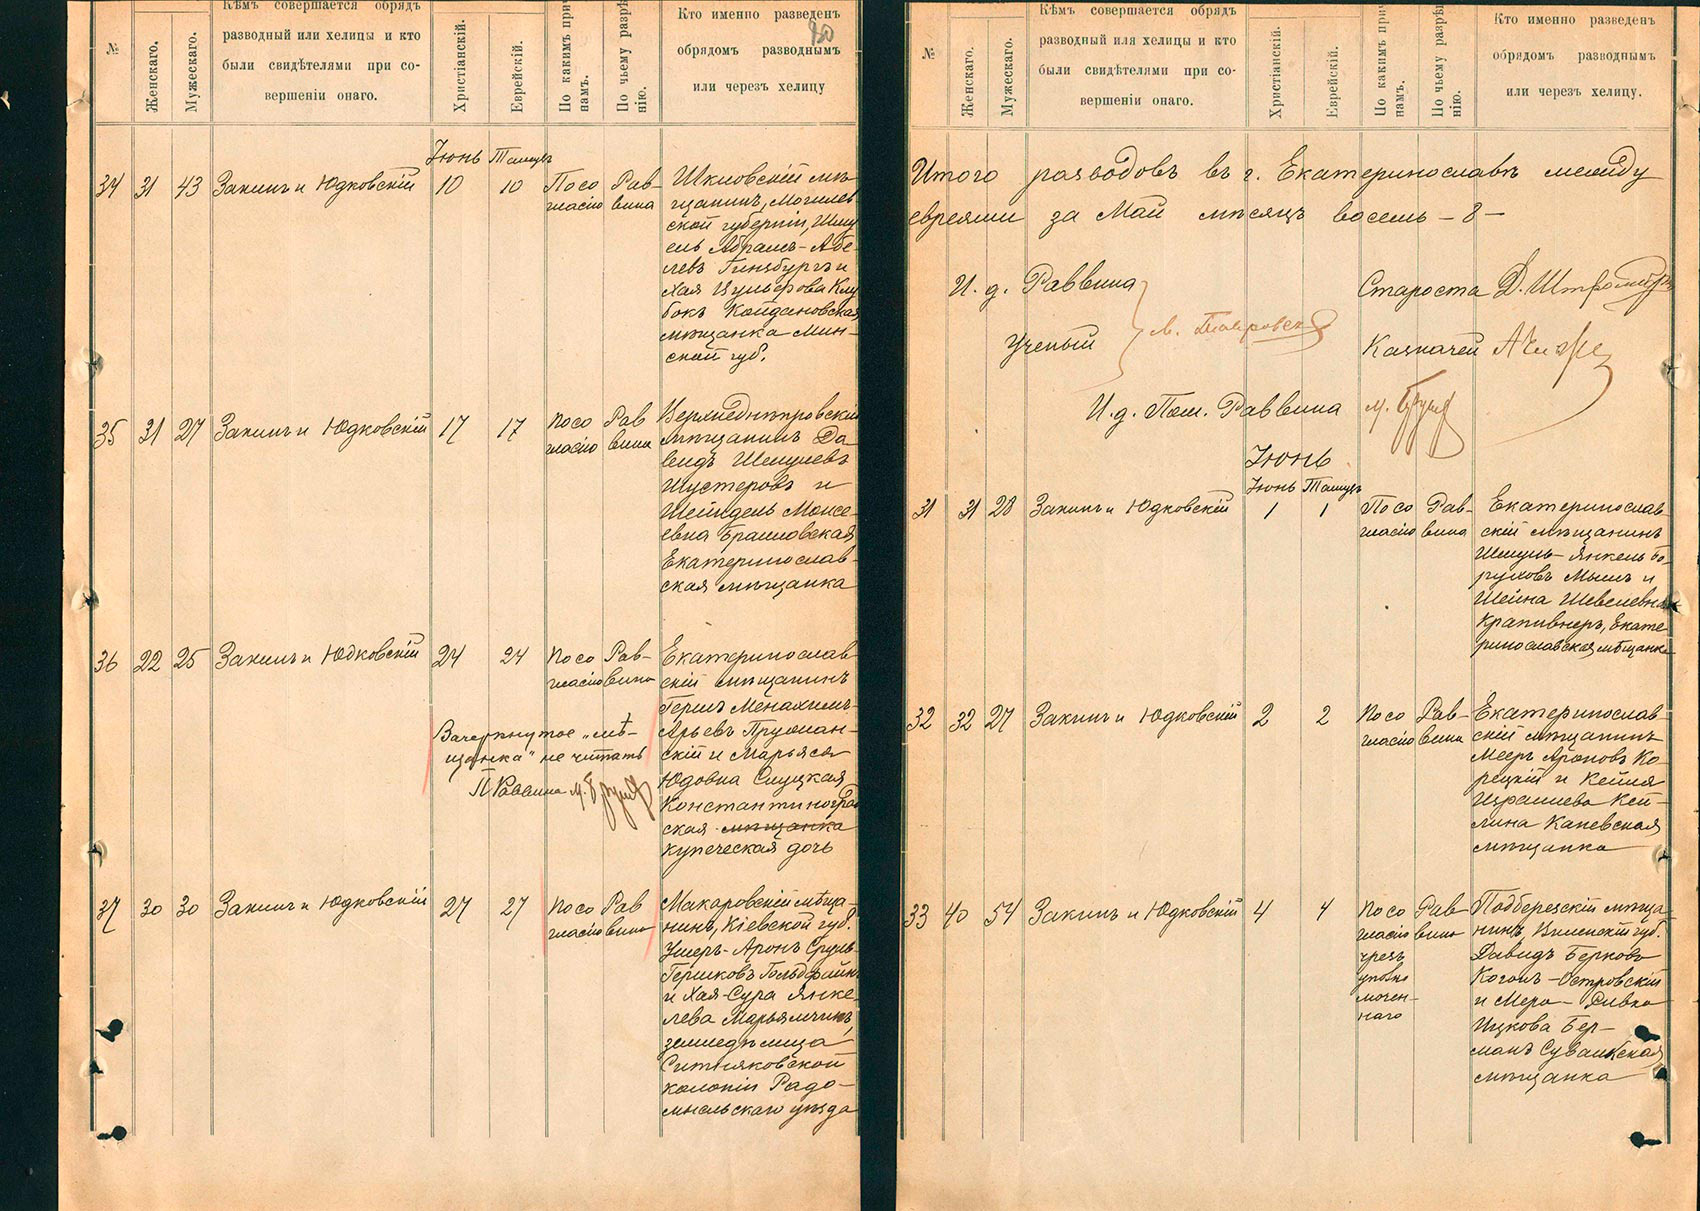 №
Женскаго.
Мужескаго.
Кѣмъ совершается обрядъ
разводный или хелицы и кто
были свидѣтелями при со-
вершеніи онаго.
Христіанскій.
Еврейскій.
По какимъ при
намъ.
По чьему разрѣ
нію.
Кто именно разведенъ
обрядомъ разводнымъ
или черезъ хелицу
Іюнь Тамузъ
34 31 43 Закинъ и Юдковскій 10 10
По со
гласію
Рав-
вина
Шкловскій мѣ
щанинъ, Могилев
ской губерніи, Шму
ель Абрамъ-Абе-
левъ Гинсбургъ и
Хая
бокъ Койдановская
мѣщанка Мин-
ской губ.
35 31 27 Закинъ и Юдковскій 17 17
По со
гласію
Рав
вина
Верхнеднѣпровскій
мѣщанинъ Да-
видъ Шмулевъ
Шустеровъ и
Шейндель Моисе-
евна Браиловская
Екатеринослав-
ская мѣщанка
36 22 25 Закинъ и Юдковскій 24 24
По со
гласію
Рав-
вина
Екатеринослав
скій мѣщанинъ
Гершъ Менахимъ-
Арьевъ Пружан-
скій и Марьяся
Юдовна Слуцкая
Константиноград
ская мѣщанка
купеческая дочь
Зачеркнутое „мѣ-
щанка“ не читать
П Раввина
37 30 30 Закинъ и Юдковскій 27 27
По со
гласію
Рав
вина
Макаровскій мѣща-
нинъ, Кіевской губ.
Ушеръ-Аронъ Сруль-
Гершковъ Гольдфайнъ
и Хая-Сура Янке-
лева Марьямчикъ,
земледѣлица
Ситняковской
колоніи Радо-
мысльскаго уѣзда
№
Женскаго.
Мужескаго.
Кѣмъ совершается обрядъ
разводный или хелицы и кто
были свидѣтелями при со-
вершеніи онаго.
Христіанскій.
Еврейскій.
По какимъ при
намъ.
По чьему разрѣ
нію.
Кто именно разведенъ
обрядомъ разводнымъ
или черезъ хелицу.
Итого разводовъ въ г. Екатеринославѣ между
евреями за Май мѣсяцъ восемь – 8 –
И. д. Раввина
Ученый
Староста
Казначей
И.д. Пом. Раввина
Іюнь
Іюнь Тамузъ
31 31 28 Закинъ и Юдковскій 1 1
По со
гласію
Рав-
вина
Екатеринослав
скій мѣщанинъ
Шмуль-Янкель Бо-
руховъ Мышъ и
Шейна Шевелевна
Крапивнеръ, Екате
ринославская мѣщанка
32 32 27 Закинъ и Юдковскій 2 2
По со
гласію
Рав-
вина
Екатеринослав-
скій мѣщанинъ
Мееръ Ароновъ Ко-
рецкій и Кейля
Израилева Кей-
лина Каневская
мѣщанка
33 40 54 Закинъ и Юдковскій 4 4
По со
гласію
чрезъ
уполно
мочен-
наго
Рав-
вина
Подберезскій мѣща-
нинъ Виленскій губ.
Давидъ Берково
Коганъ-Островскій
и Мера-Ривка
Ицкова Бер-
манъ Сувалкская
мѣщанка